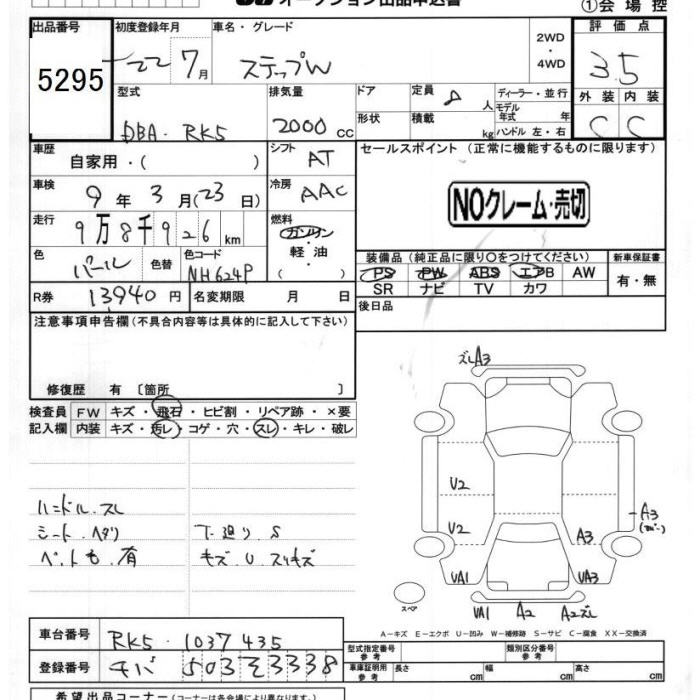 オークション出品申込書
①会場控
出品番号
5295
初度登録年月
22 7月
車名・グレード
ステップW
2WD
・
4WD
評価点
3.5
外装 内装
C C
型式
DBA・RK5
排気量
2000cc
ドア
形状
定員 8人
積載 kg
ディーラー・並行
モデル年式 年
ハンドル 左・右
車歴
自家用・( )
シフト
AT
セールスポイント (正常に機能するものに限ります)
NOクレーム・売切
車検
9年3月(23日)
冷房
AAC
走行
9万8千926km
燃料
ガソリン
・
軽油
・
( )
色
パール
色替
色コード
NH624P
装備品(純正品に限り○をつけてください)
PS PW ABS エアB AW
SR ナビ TV カワ
新車保証書
有・無
R券 13940円
名変期限 月 日
後日品
注意事項申告欄(不具合内容等は具体的に記入して下さい)
修復歴 有 〔箇所 〕
検査員記入欄
FW キズ・飛石・ヒビ割・リペア跡・×要
内装 キズ・汚レ・コゲ・穴・スレ・キレ・破レ
ハンドル.スレ
シート.ヘタリ
ペットも.有
下廻り.S
キズ.U.スリキズ
ズレA3
U2
U2
A3
A3
UA1
UA3
UA1
A2
A2ズレ
スペア
A−キズ E−エクボ U−凹み W−補修跡 S−サビ C−腐食 XX−交換済
車台番号
RK5-1037435
登録番号
チバ 503 そ 3338
型式指定番号 参考
類別区分番号 参考
車庫証明用 参考
長さ cm
幅 cm
高さ cm
希望出品コーナー(コーナーは各会場により異なります。)